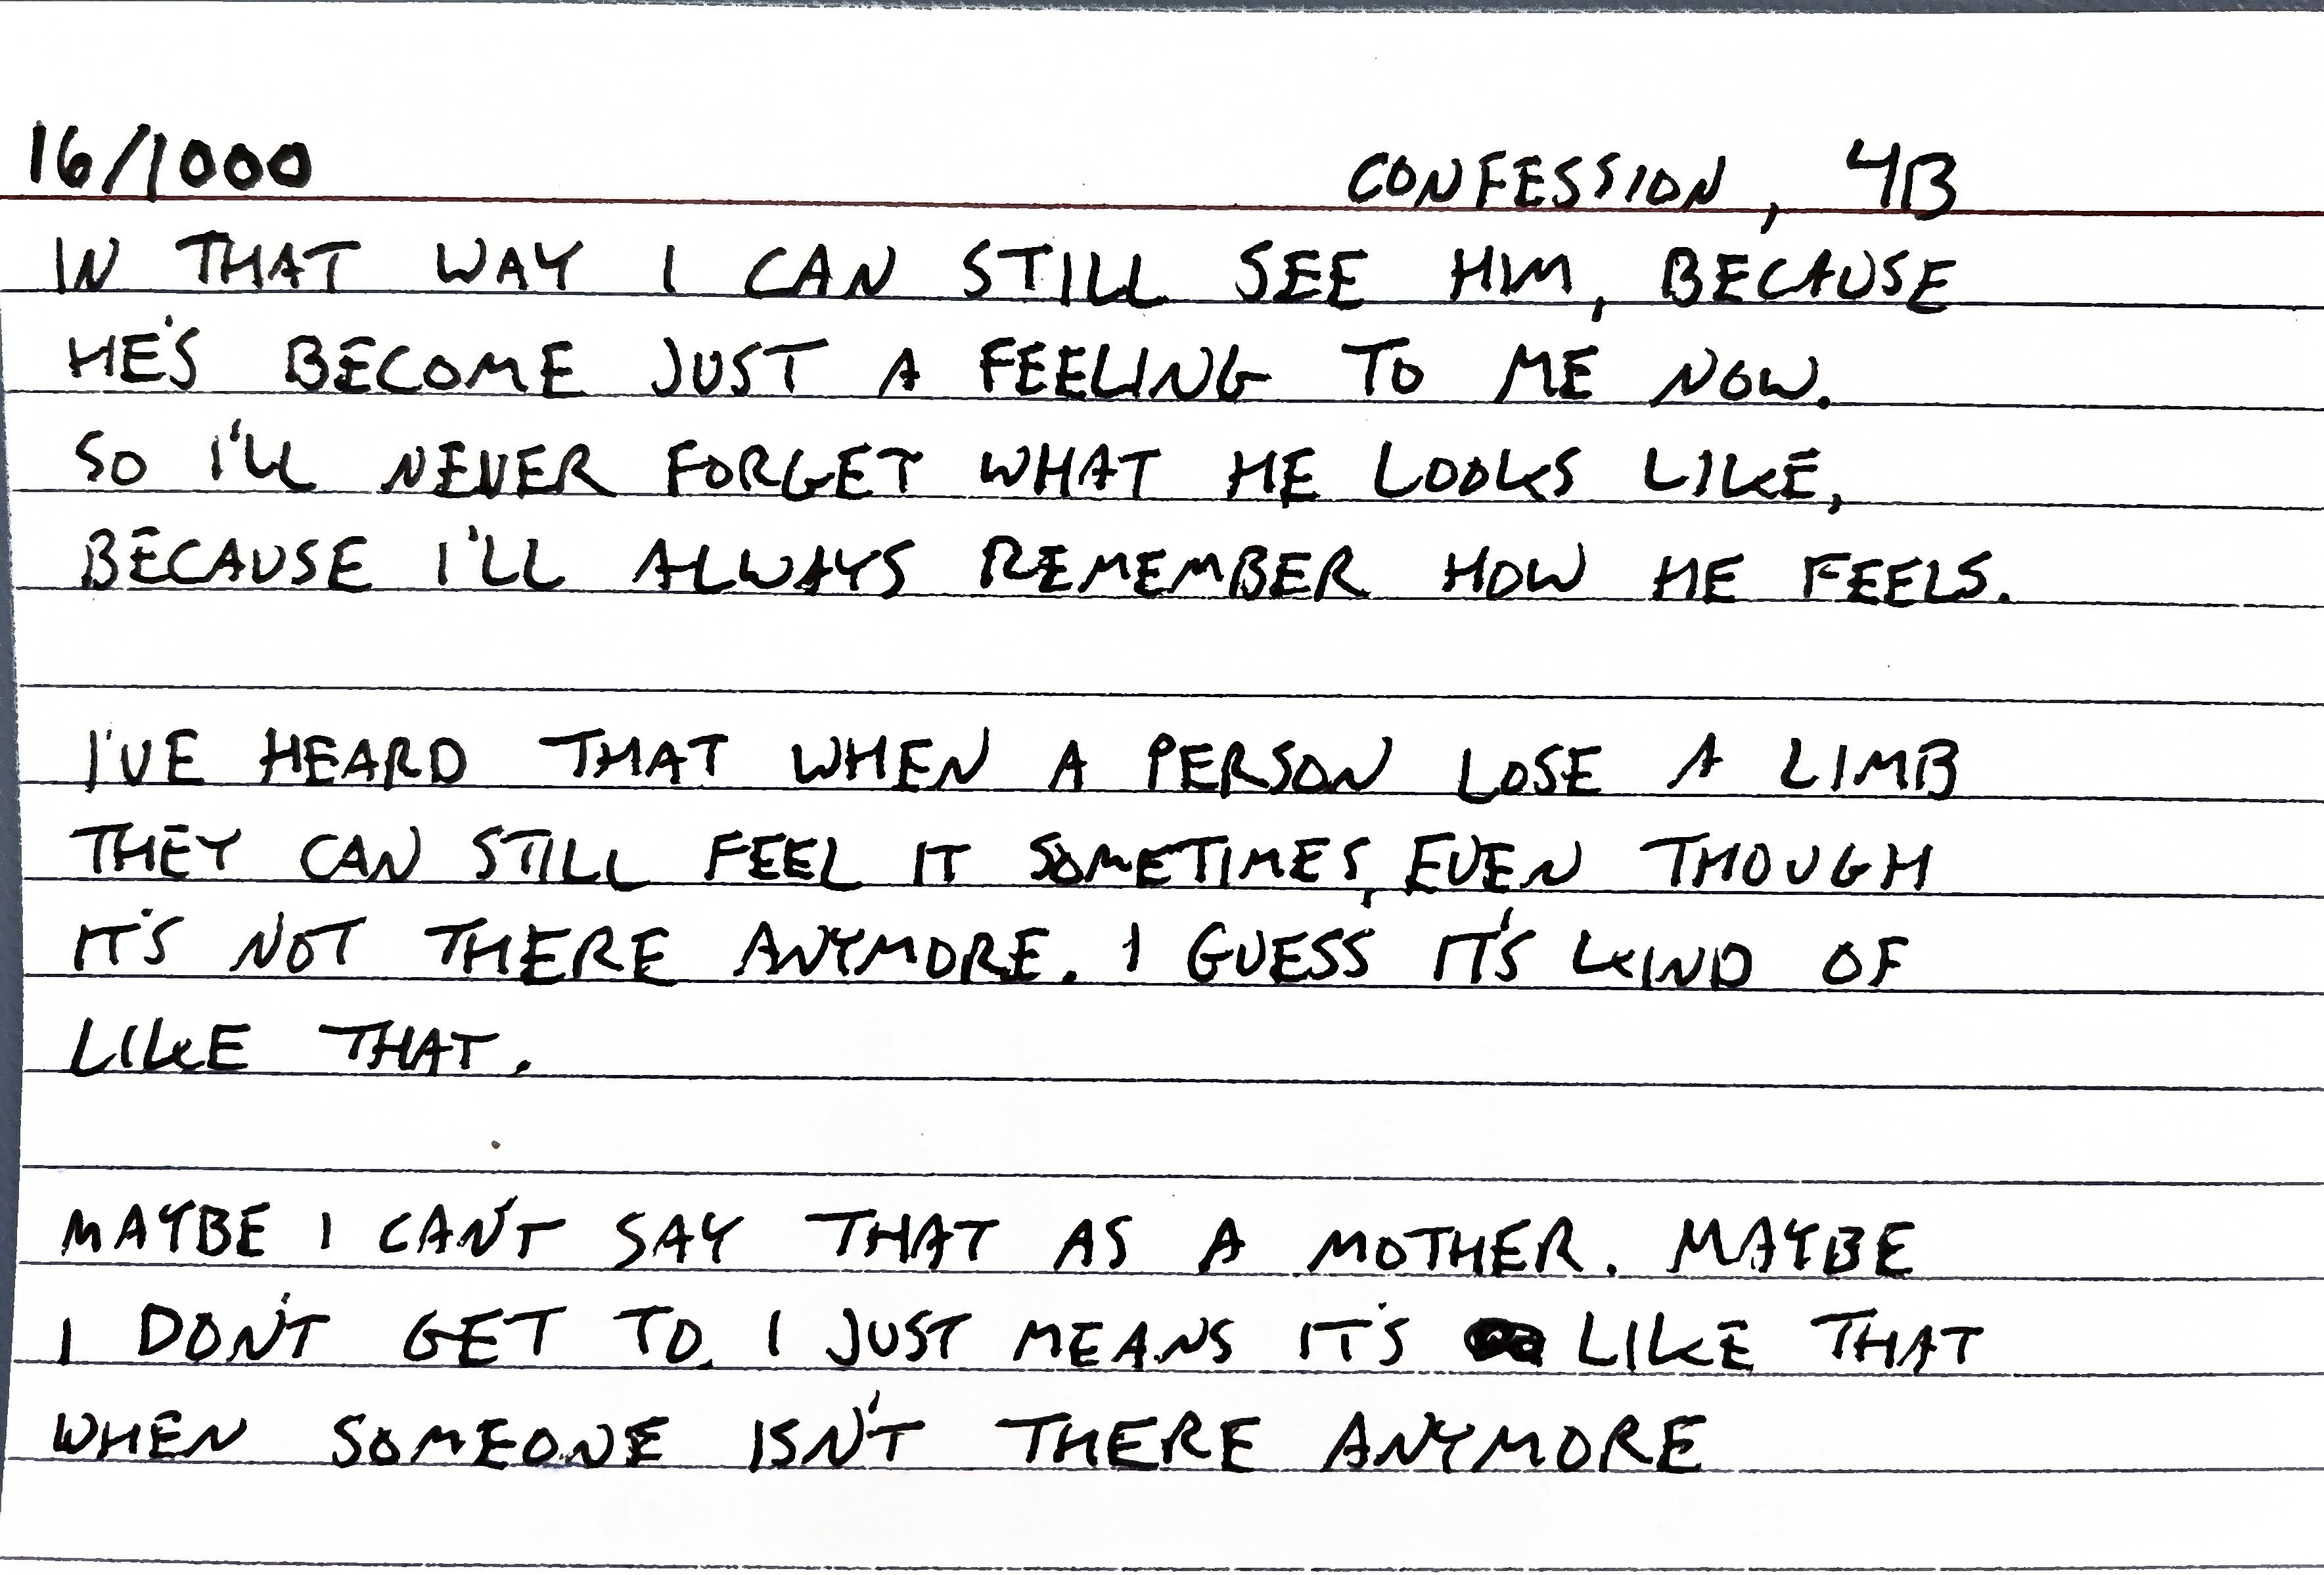 16/1000 CONFESSION, 4B
IN THAT WAY I CAN STILL SEE HIM, BECAUSE
HE'S BECOME JUST A FEELING TO ME NOW.
SO I'LL NEVER FORGET WHAT HE LOOKS LIKE,
BECAUSE I'LL ALWAYS REMEMBER HOW HE FEELS.
I'VE HEARD THAT WHEN A PERSON LOSE A LIMB
THEY CAN STILL FEEL IT SOMETIMES, EVEN THOUGH
IT'S NOT THERE ANYMORE. I GUESS IT'S KIND OF
LIKE THAT.
MAYBE I CAN'T SAY THAT AS A MOTHER. MAYBE
I DON'T GET TO. I JUST MEANS IT'S LIKE THAT
WHEN SOMEONE ISN'T THERE ANYMORE